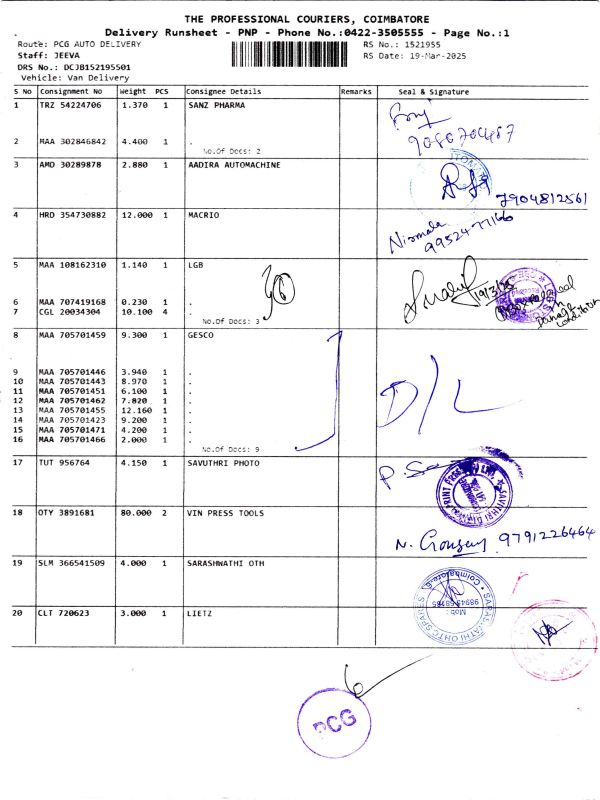 THE PROFESSIONAL COURIERS, COIMBATORE
Delivery Runsheet - PNP - Phone No.:0422-3505555 - Page No.:1
Route: PCG AUTO DELIVERY RS No.: 1521955
Staff: JEEVA RS Date: 19-Mar-2025
DRS No.: DCJB152195501
Vehicle: Van Delivery
S No Consignment No Weight PCS Consignee Details Remarks Seal & Signature
1 TRZ 54224706 1.370 1 SANZ PHARMA
2 MAA 302846842 4.400 1 .
No.Of Docs: 2
3 AMD 30289878 2.880 1 AADIRA AUTOMACHINE
7904812561
4 HRD 354730882 12.000 1 MACRIO
Nirmala
9952477166
5 MAA 108162310 1.140 1 LGB
19/3/25
6 MAA 707419168 0.230 1 .
7 CGL 20034304 10.100 4 .
Damage
Condition
No.Of Docs: 3
8 MAA 705701459 9.300 1 GESCO
9 MAA 705701446 3.940 1 .
10 MAA 705701443 8.970 1 .
11 MAA 705701451 6.100 1 .
12 MAA 705701462 7.820 1 .
13 MAA 705701455 12.160 1 .
14 MAA 705701423 9.200 1 .
15 MAA 705701471 4.200 1 .
16 MAA 705701466 2.000 1 .
D/L
No.Of Docs: 9
17 TUT 956764 4.150 1 SAVUTHRI PHOTO
18 OTY 3891681 80.000 2 VIN PRESS TOOLS
9791226464
19 SLM 366541509 4.000 1 SARASHWATHI OTH
20 CLT 720623 3.000 1 LIETZ
PCG